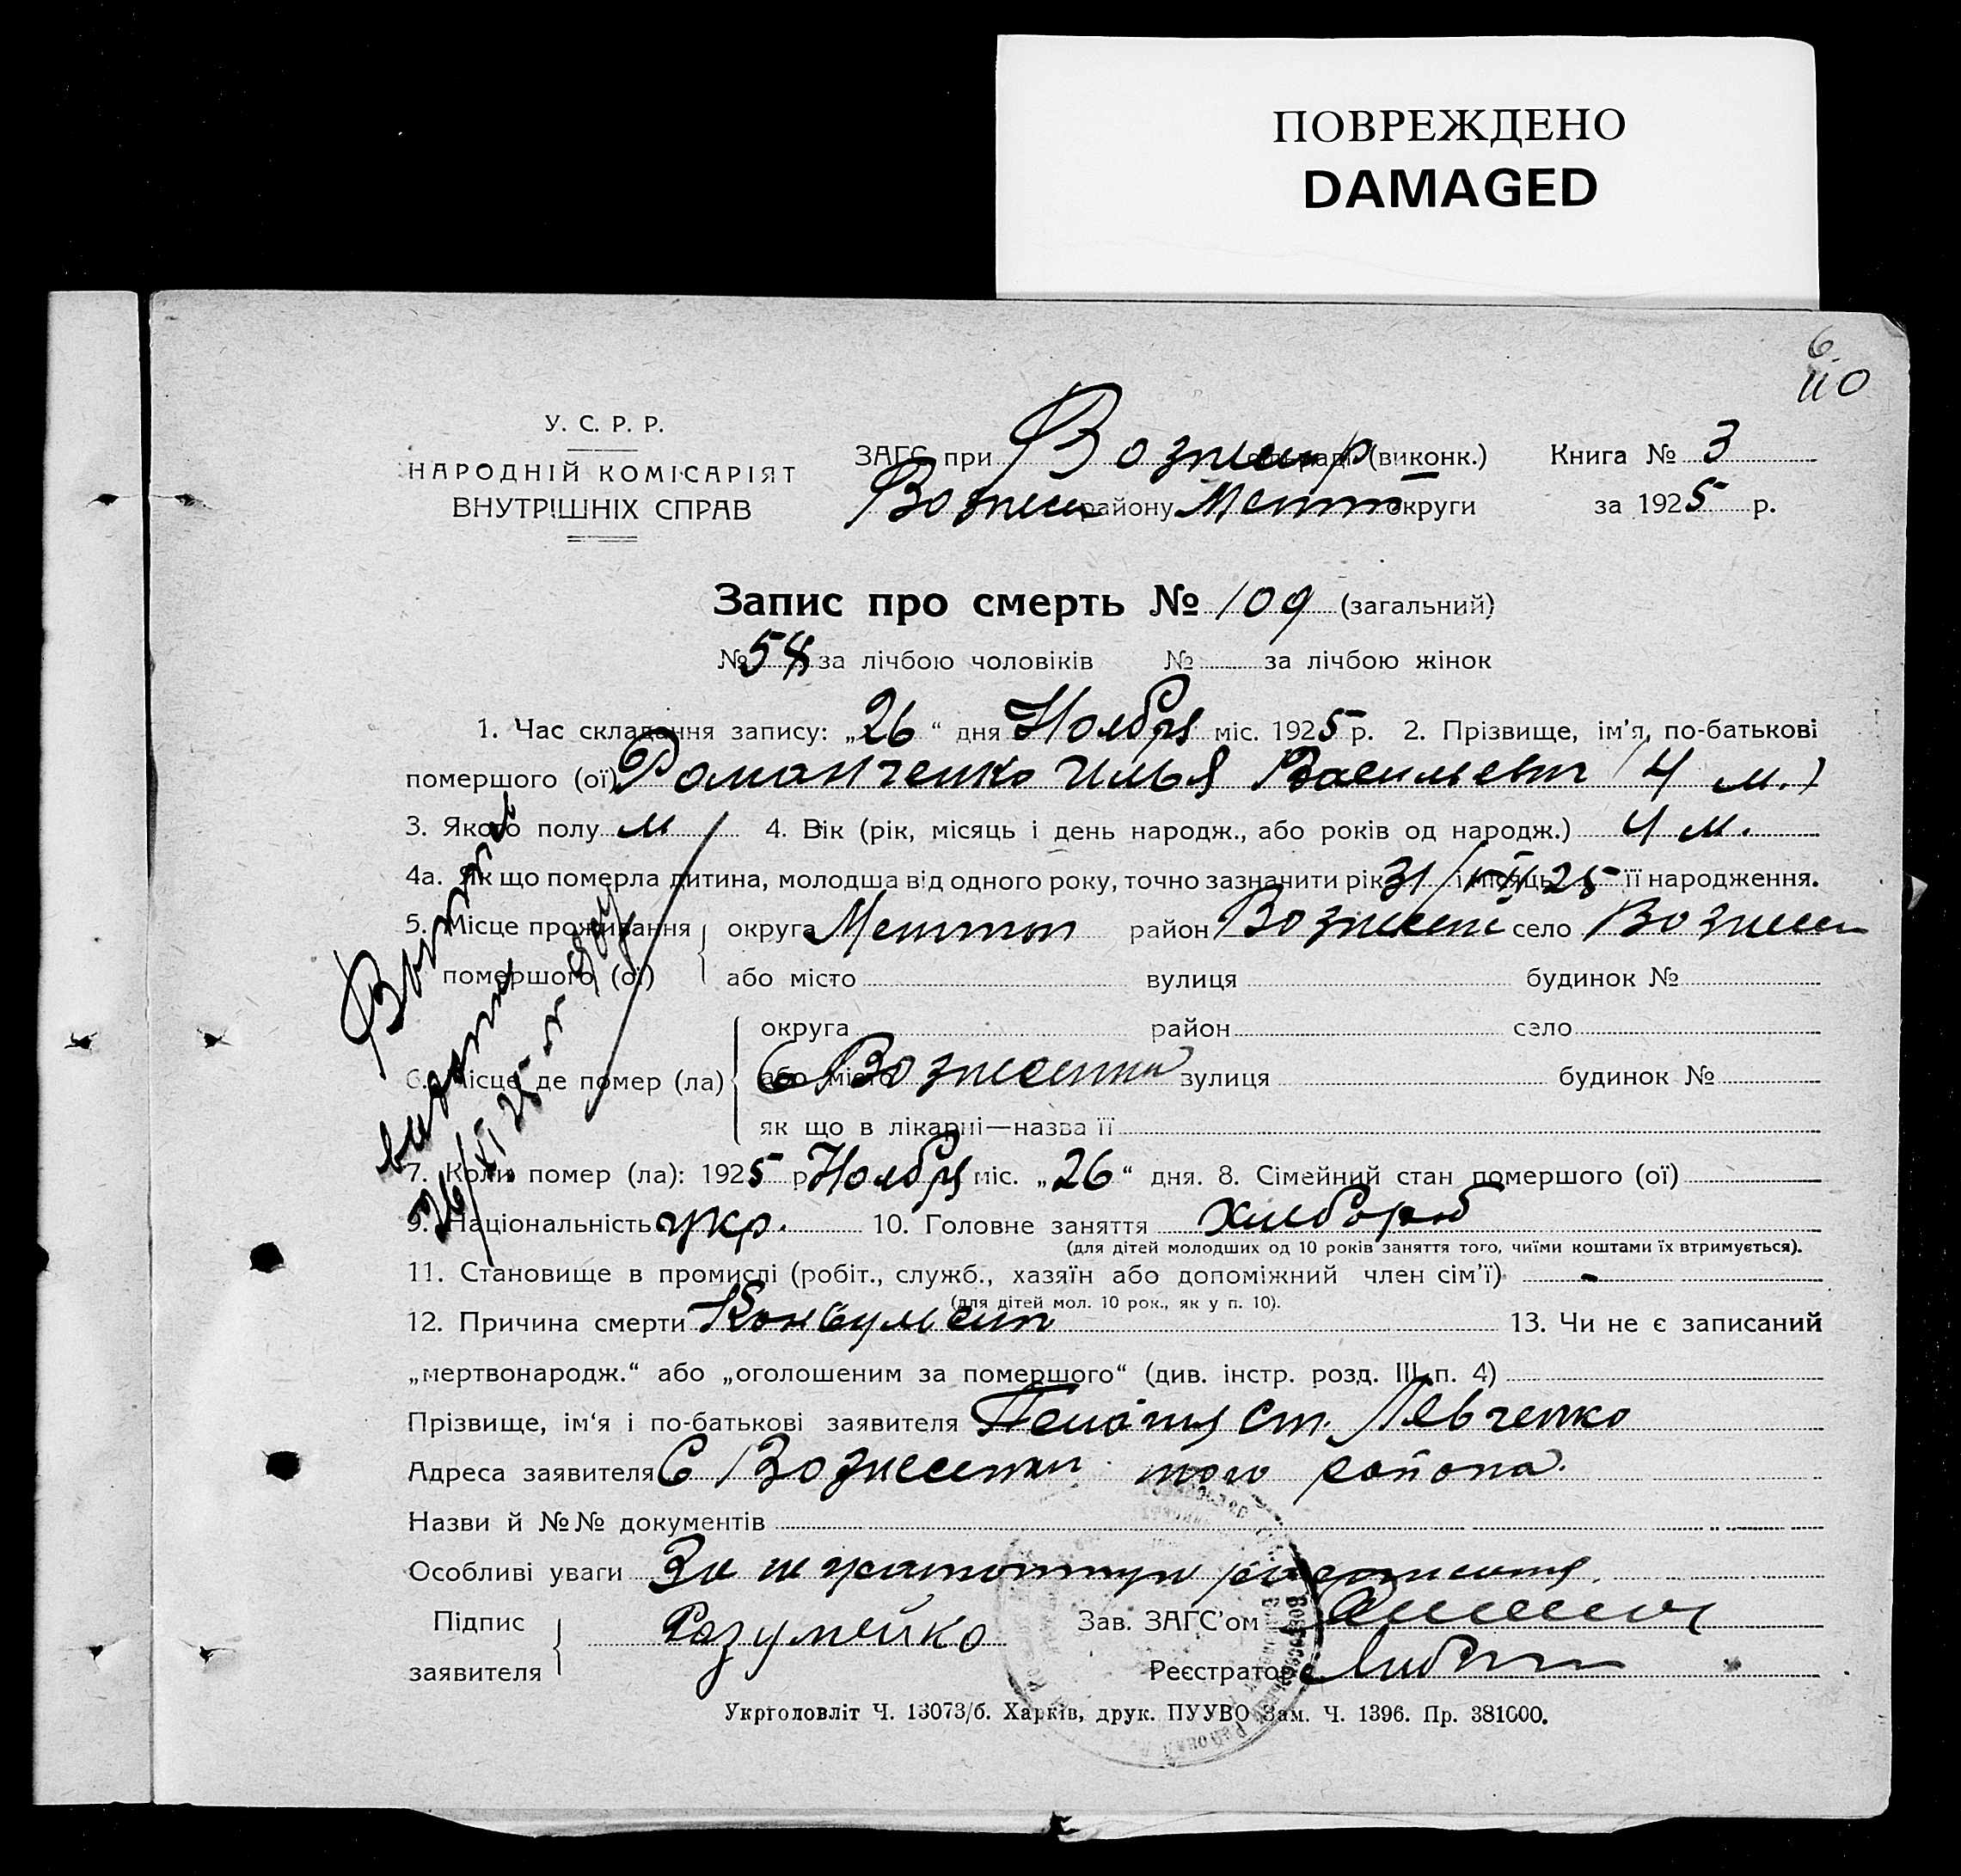 ПОВРЕЖДЕНО
DAMAGED
6.
110
У. С. Р. Р.
НАРОДНІЙ КОМІСАРІЯТ
ВНУТРІШНІХ СПРАВ
ЗАГС при Вознер (виконк.)
Книга № 3
Вознесен району Мелит округи
за 1925 р.
Запис про смерть № 109 (загальний)
№ 58 за лічбою чоловіків № за лічбою жінок
1. Час складання запису: „26“ дня Ноября міс. 1925 р. 2. Прізвище, ім’я, по-батькові
помершого (ої) Романченко Илья Васильевич (4 м.)
3. Якого полу м 4. Вік (рік, місяць і день народж., або років од народж.) 4 м.
4а. Як що померла дитина, молодша від одного року, точно зазначити рік 31/VII 25 і місяць її народження.
5. Місце проживання округа Мелитоп район Вознесен село Вознесен
помершого (ої) або місто вулиця будинок №
округа район село
6. Місце де помер (ла) або місто С Вознесенки вулиця будинок №
як що в лікарні—назва її
7. Коли помер (ла): 1925 р Ноября міс. „26“ дня. 8. Сімейний стан помершого (ої)
9. Національність укр. 10. Головне заняття хлебороб
(для дітей молодших од 10 років заняття того, чиїми коштами їх втримується).
11. Становище в промислі (робіт., служб., хазяїн або допоміжний член сім’ї) -
(для дітей мол. 10 рок., як у п. 10).
12. Причина смерти Конвульсии 13. Чи не є записаний
„мертвонародж.“ або „оголошеним за помершого“ (див. інстр. розд. III п. 4)
Прізвище, ім‘я і по-батькові заявителя Ст. Левченко
Адреса заявителя С Вознесенки того района.
Назви й №№ документів
Особливі уваги За неграмотную росписался.
Підпис Розумейко Зав. ЗАГС’ом
заявителя Реєстратор
Укрголовліт Ч. 13073/б. Харків, друк. ПУУВО Зам. Ч. 1396. Пр. 381000.
26/XI 25